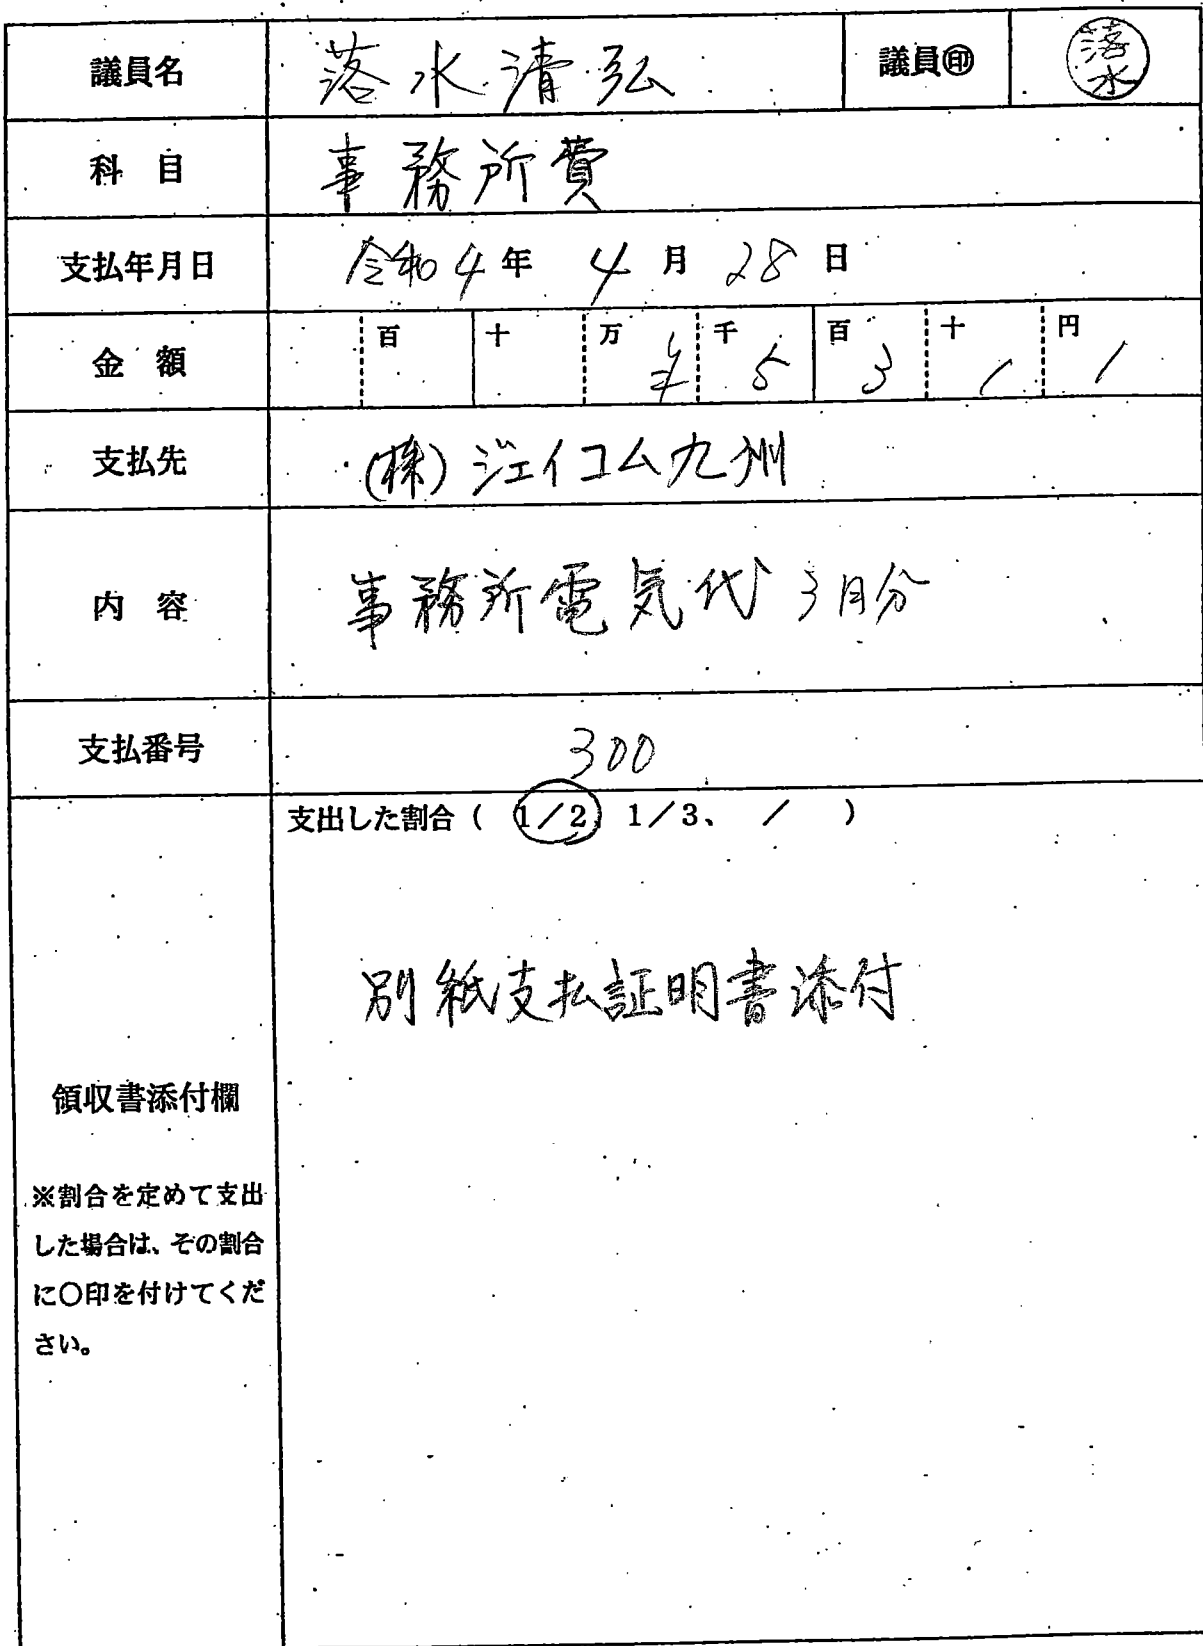 議員名 落水清弘 議員㊞ 落水
科 目 事務所費
支払年月日 令和4年 4月 28日
金 額 百 十 万 ¥ 千 5 百 3 十 1 円 1
支払先 (株)ジェイコム九州
内 容 事務所電気代 3月分
支払番号 300
支出した割合( 1/2、1/3、 / )
別紙支払証明書添付
領収書添付欄
※割合を定めて支出
した場合は、その割合
に〇印を付けてくだ
さい。